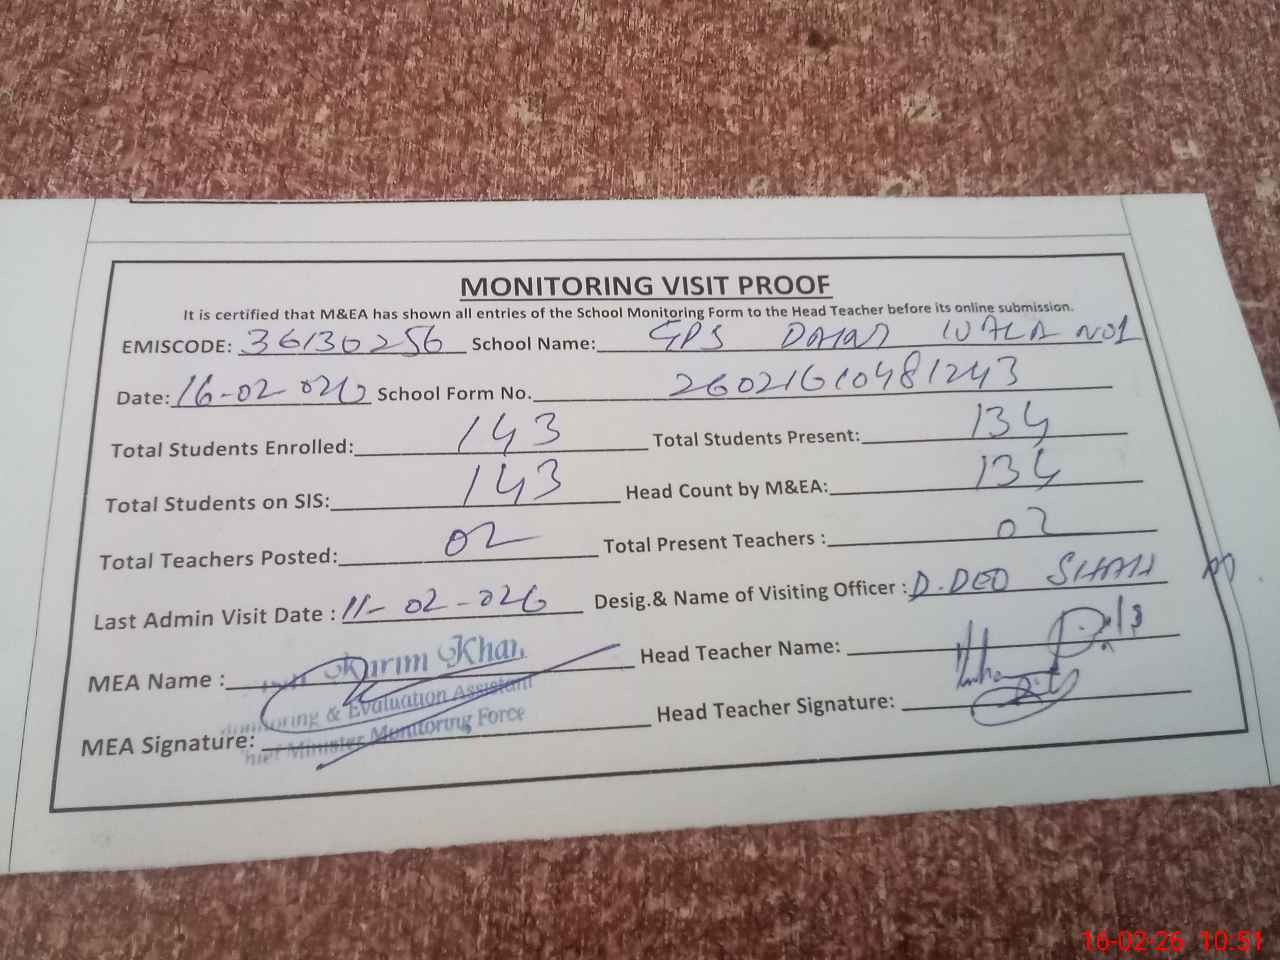 MONITORING VISIT PROOF
It is certified that M&EA has shown all entries of the School Monitoring Form to the Head Teacher before its online submission.
EMISCODE: 36130256 School Name: GPS WALA NO1
Date: 16-02-026 School Form No. 26021610481243
Total Students Enrolled: 143 Total Students Present: 134
Total Students on SIS: 143 Head Count by M&EA: 134
Total Teachers Posted: 02 Total Present Teachers : 02
Last Admin Visit Date : 11-02-026 Desig.& Name of Visiting Officer : D.DEO SHAH
MEA Name : Karim Khan Head Teacher Name:
Monitoring & Evaluation Assistant
MEA Signature: Chief Minister Monitoring Force Head Teacher Signature:
16-02-26 10:51